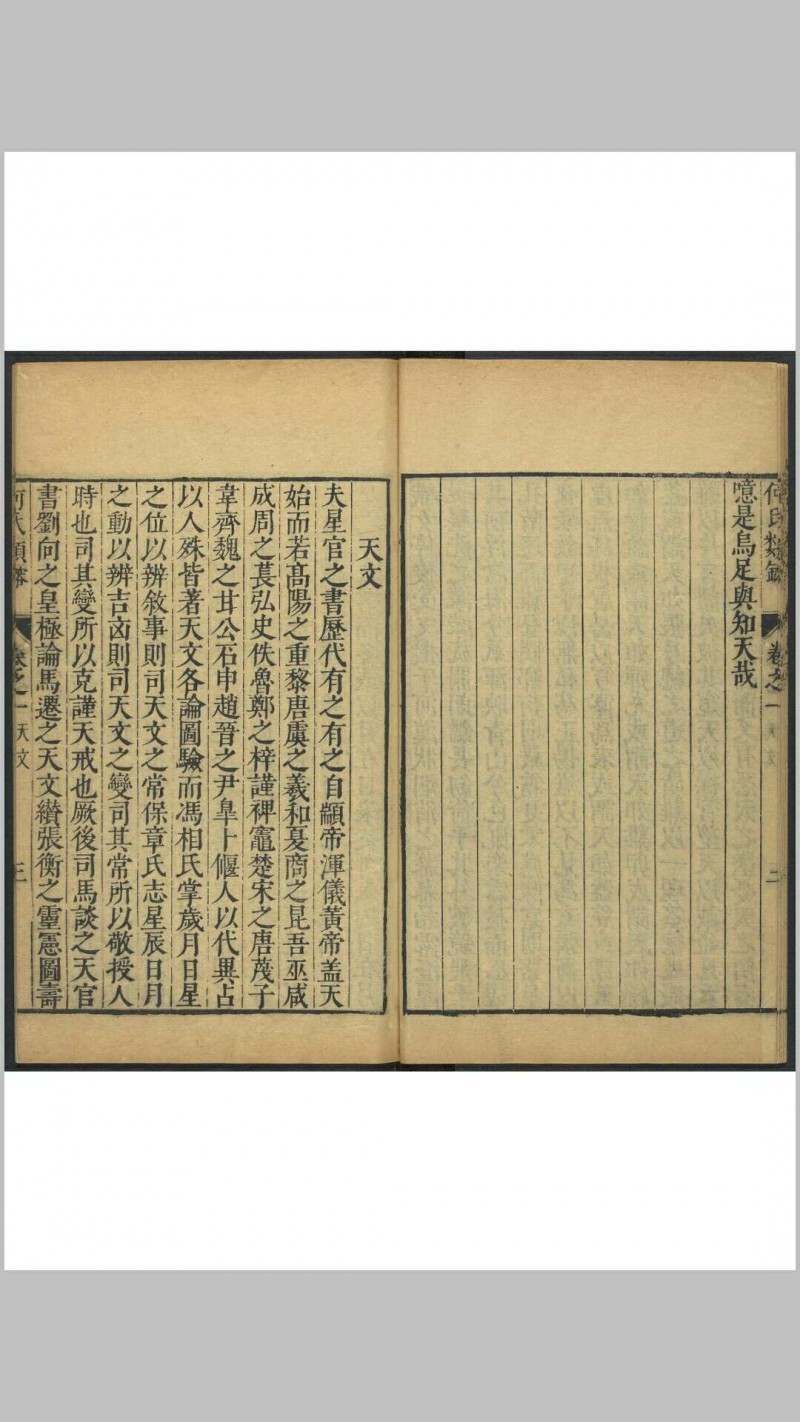 何氏類鎔 卷之一 天文 二
噫是烏足與知天哉
天文
夫星官之書歷代有之有之自顓帝渾儀黃帝盖天
始而若高陽之重黎唐虞之羲和夏商之昆吾巫咸
成周之萇弘史佚魯鄭之梓謹裨竈楚宋之唐蔑子
韋齊魏之甘公石申趙晉之尹臯卜偃人以代異占
以人殊皆著天文各論圖驗而馮相氏掌歲月日星
之位以辨敘事則司天文之常保章氏志星辰日月
之動以辨吉凶則司天文之變司其常所以敬授人
時也司其變所以克謹天戒也厥後司馬談之天官
書劉向之皇極論馬遷之天文纉張衡之靈憲圖壽
何氏類鎔 卷之一 天文 三